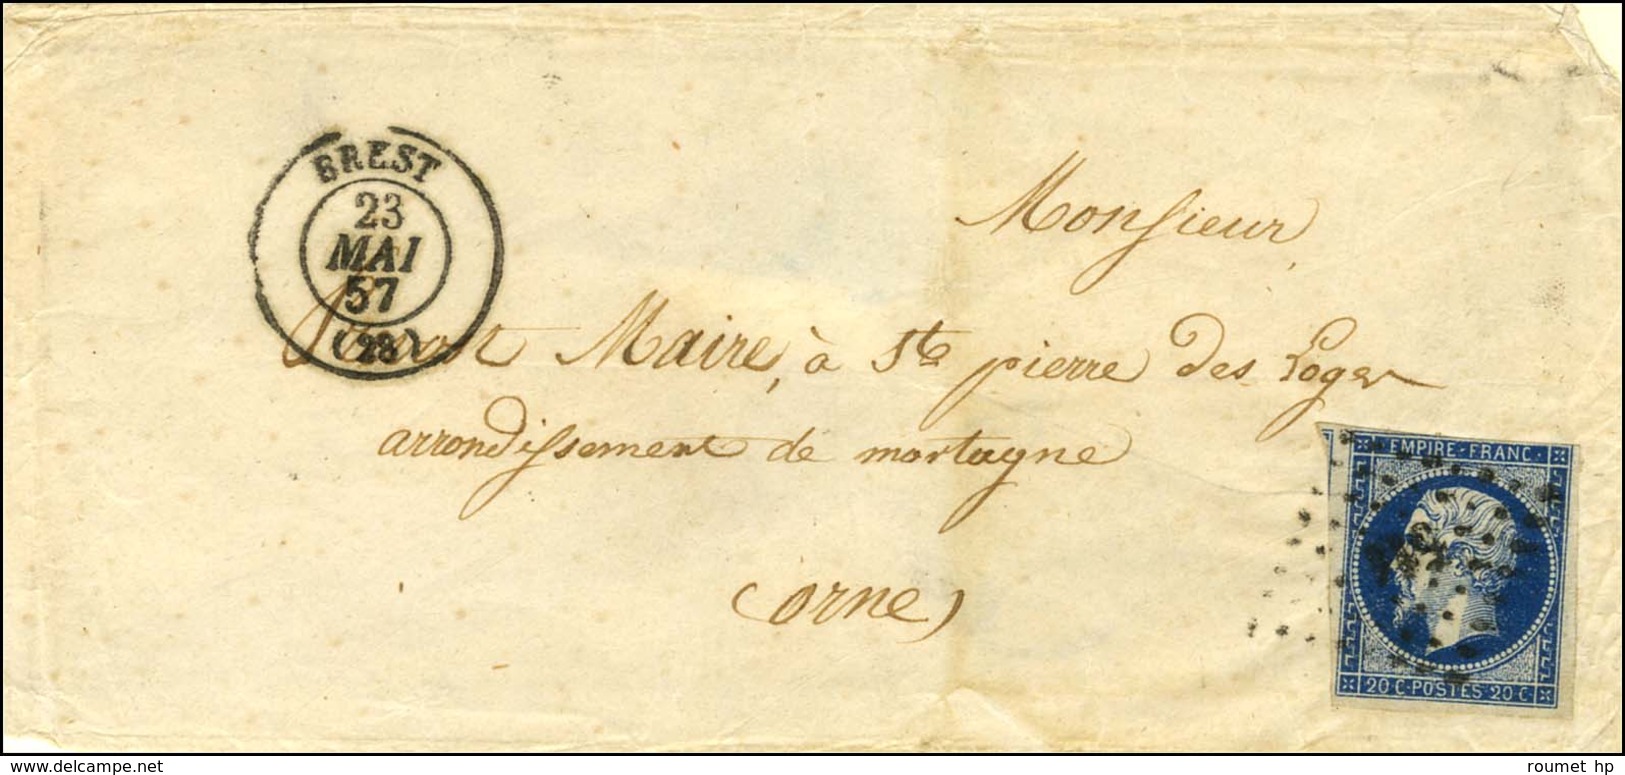 BREST
23
MAI
57
(28)
Monsieur
Maire, à Ste pierre des Loges
arrondissement de mortagne
(orne)
EMPIRE-FRANC.
20 C-POSTES 20 C
www.delcampe.net
roumet hp